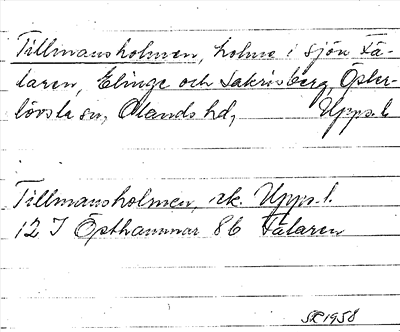 Tillmansholmen, holme i sjön Fä-
laren, Elinge och Sakrisberg, Öster-
lövsta sn, Olands hd, Upps. l.
Tillmansholmen, rk. Upps. l.
12 I Östhammar 86 Fälaren
SR 1958